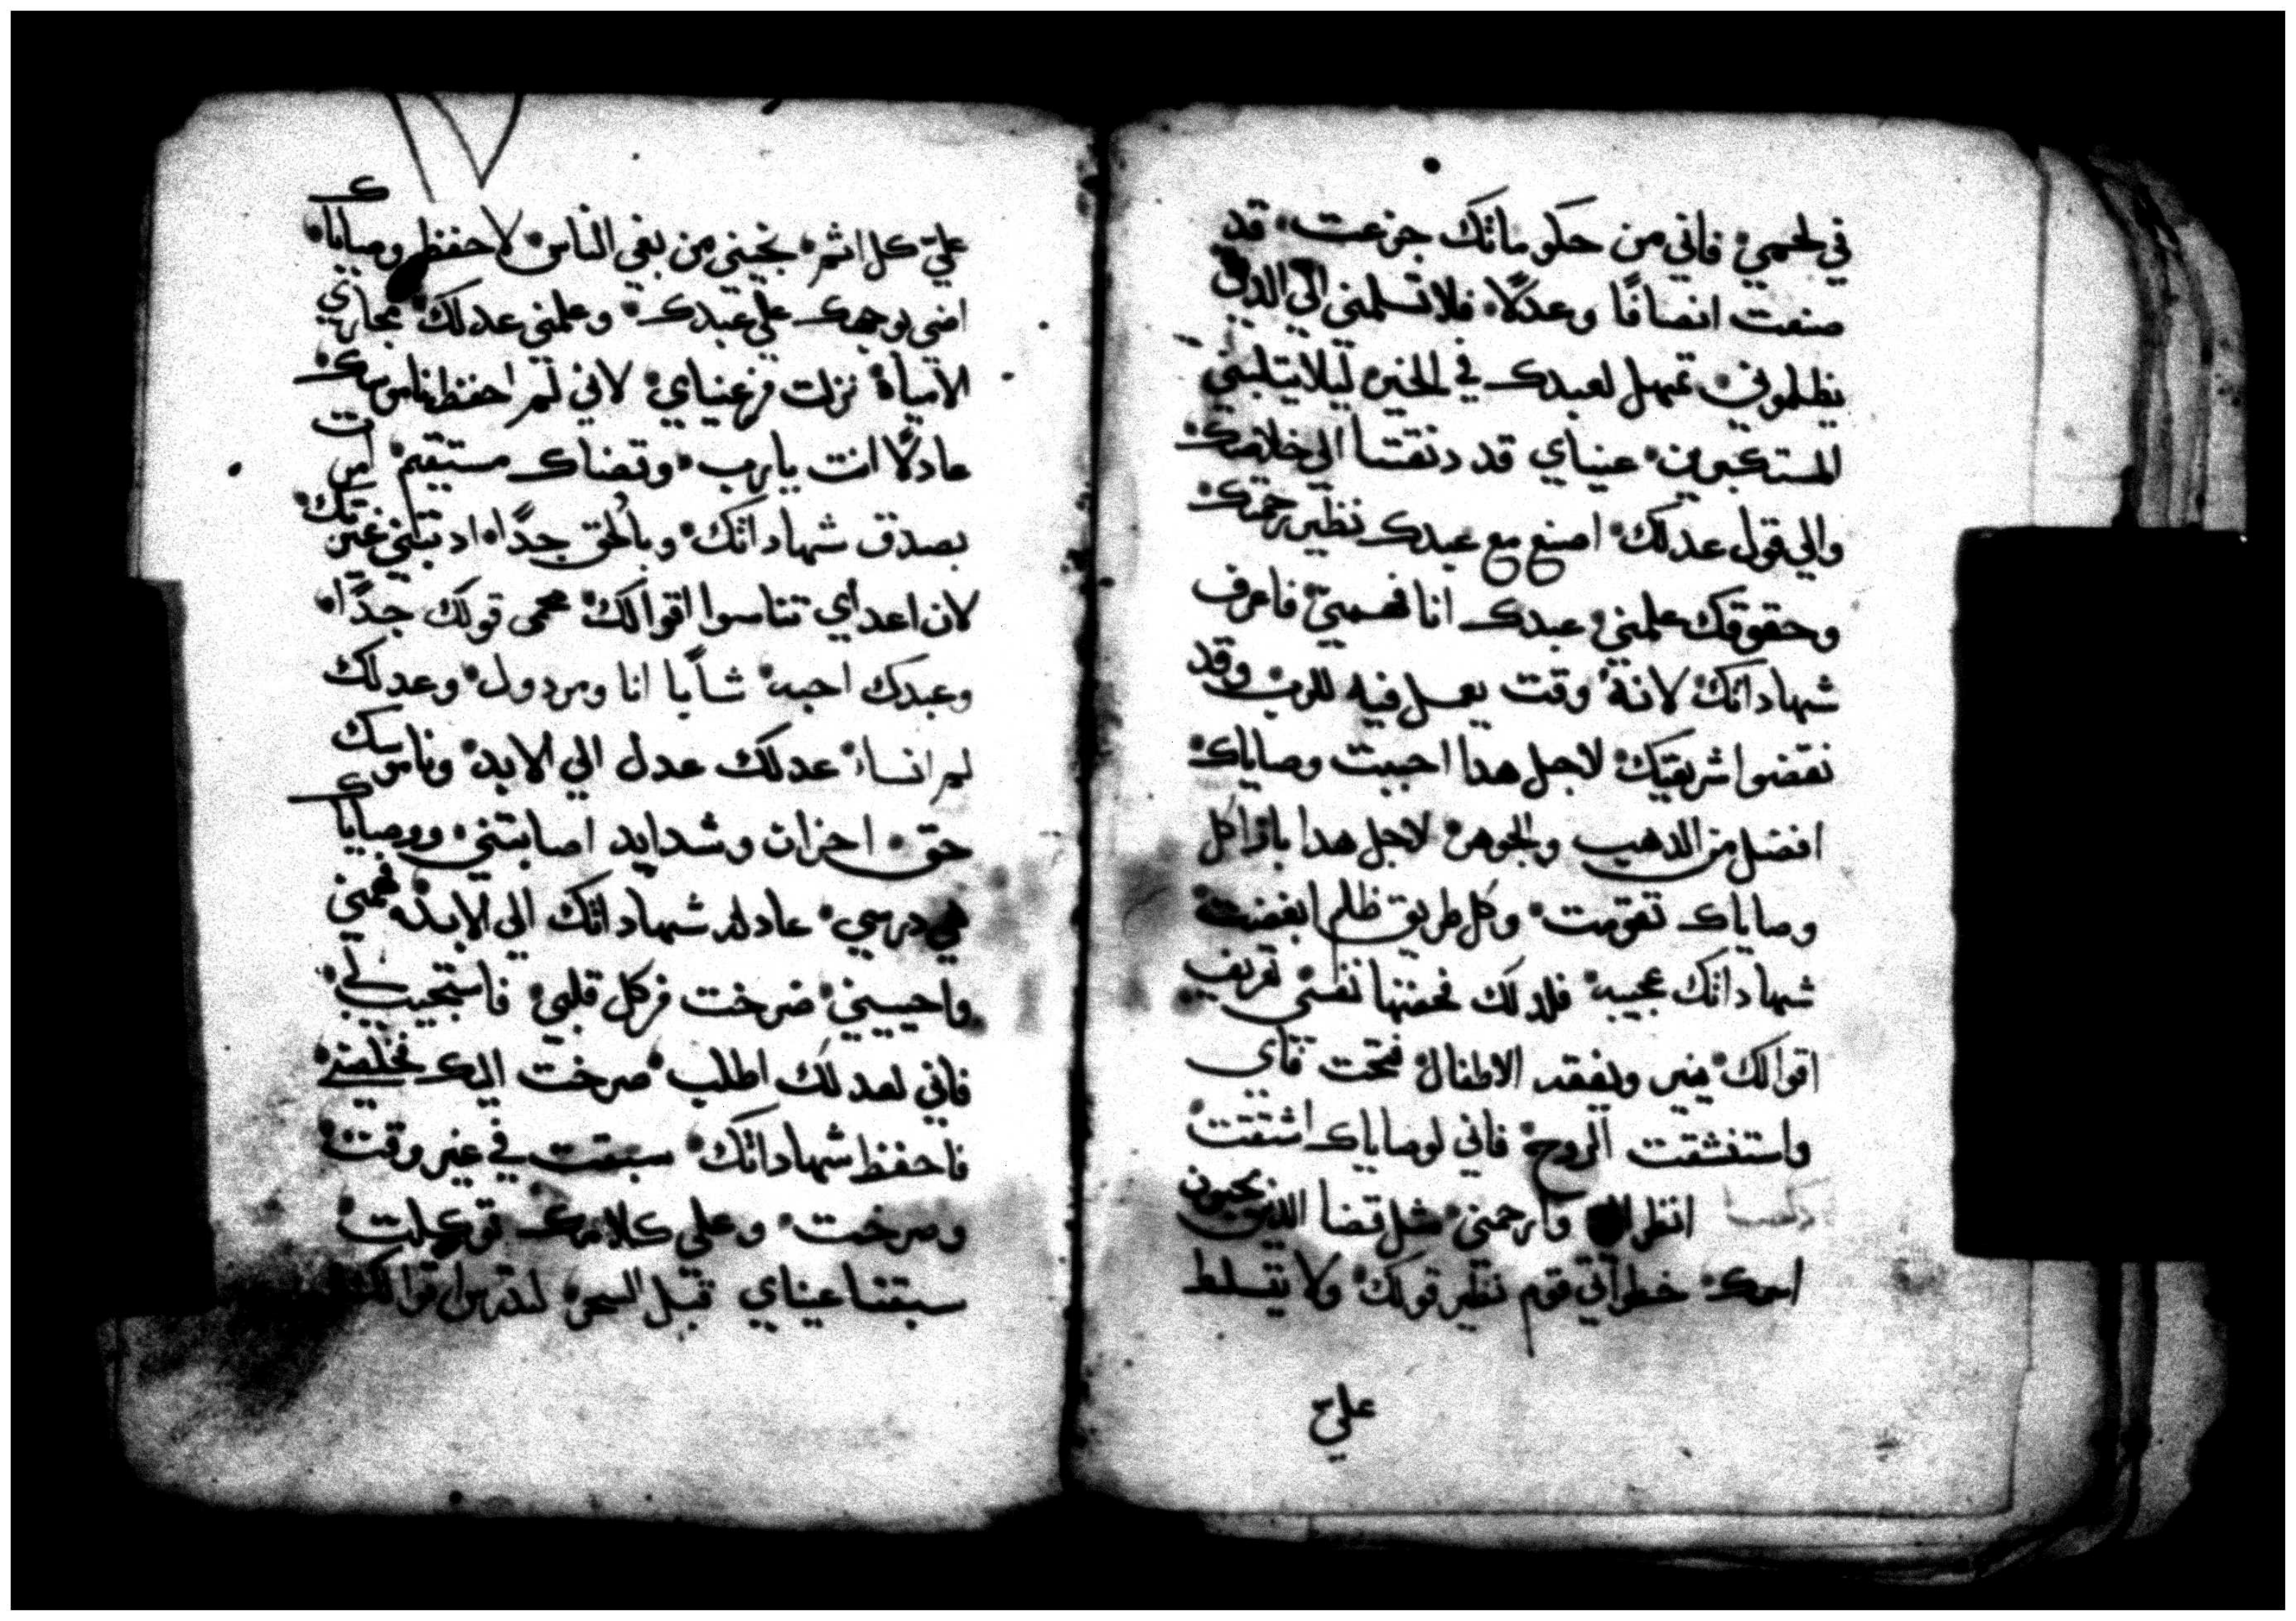 في لحمي فاني من حكوماتك جزعت قد
صنعت انصافًا وعدلًا فلا تسلمني الي الدين
يظلموني تمهل لعبدك في الخير ليلا يتلبني
المستكبرين عيناي قد دنقتا الي خلاصك
والي قول عدلك اصنع مع عبدك نظير رحمتك
وحقوقك علمني عبدك انا فهمني فاعرف
شهاداتك لانه وقت يعمل فيه للرب وقد
نقضوا شريعتك لاجل هدا احببت وصاياك
افضل من الدهب والجوهر لاجل هدا بازا كل
وصاياك تقومت وكل طريق ظلم ابغضت
شهاداتك عجيبه فلدلك فحصتها نفسي تعريف
اقوالك ينير ويفقه الاطفال فتحت فاي
واستنشقت الروح فاني لوصاياك اشتقت
انظر وارحمني مثل قضا الدين يحبون
اسمك خطواتي قوم نظير قولك ولا يتسلط
علي
علي كل اثم نجيني من بغي الناس لاحفظ وصاياك
اضي بوجهك علي عبدك وعلمني عدلك مجاري
الامياه نزلت من عيناي لاني لم احفظ ناموسك
عادلًا انت يارب وقضاك مستقيم امرت
بصدق شهاداتك وبالحق جدًا ادبتني غيرتك
لان اعداي تناسوا اقوالك محمي قولك جدًا
وعبدك احبه شابًا انا ومردول وعدلك
لم انساه عدلك عدل الي الابد وناموسك
حق احزان وشدايد اصابتني ووصاياك
هي درسي عادله شهاداتك الي الابد فهمني
واحييني صرخت من كل قلبي فاستجيب لي
فاني لعدلك اطلب صرخت اليك فخلصني
فاحفظ شهاداتك سبقت في غير وقت
وصرخت وعلي كلامك توكلت
سبقتا عيناي قبل السحر لتدرس اقوالك